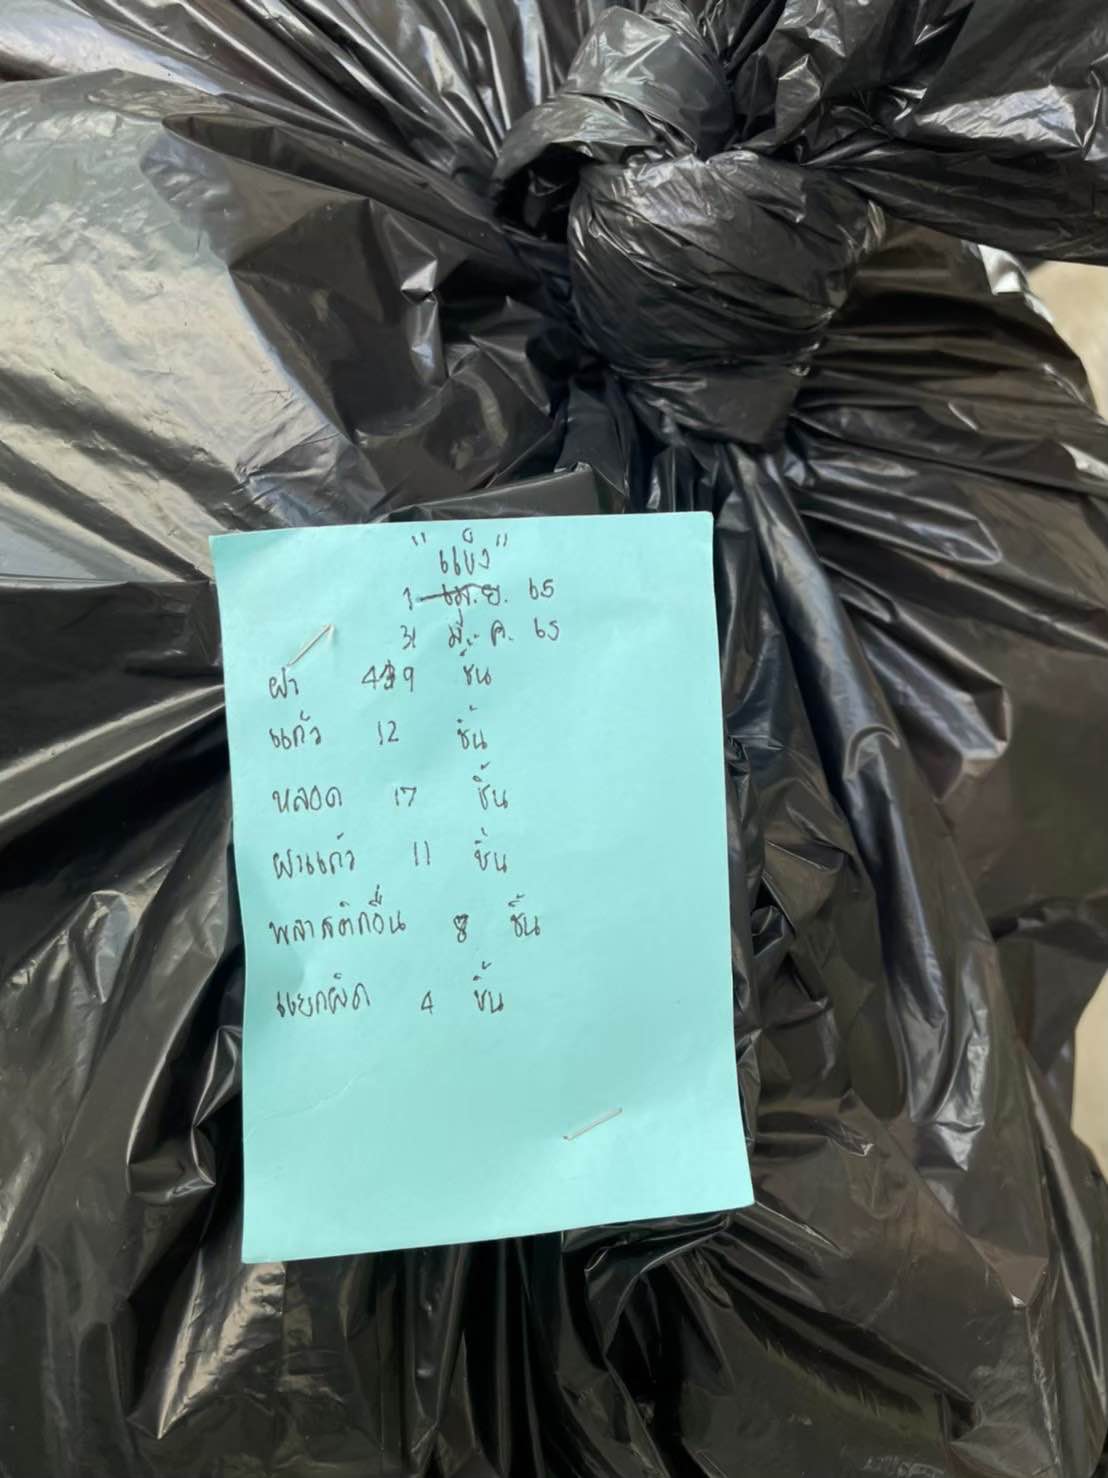 "แข็ง"
1 เม.ย. 65
31 มี.ค. 65
ฝา 439 ชิ้น
แก้ว 12 ชิ้น
หลอด 17 ชิ้น
ฝาแก้ว 11 ชิ้น
พลาสติกอื่น 8 ชิ้น
แยกผิด 4 ชิ้น